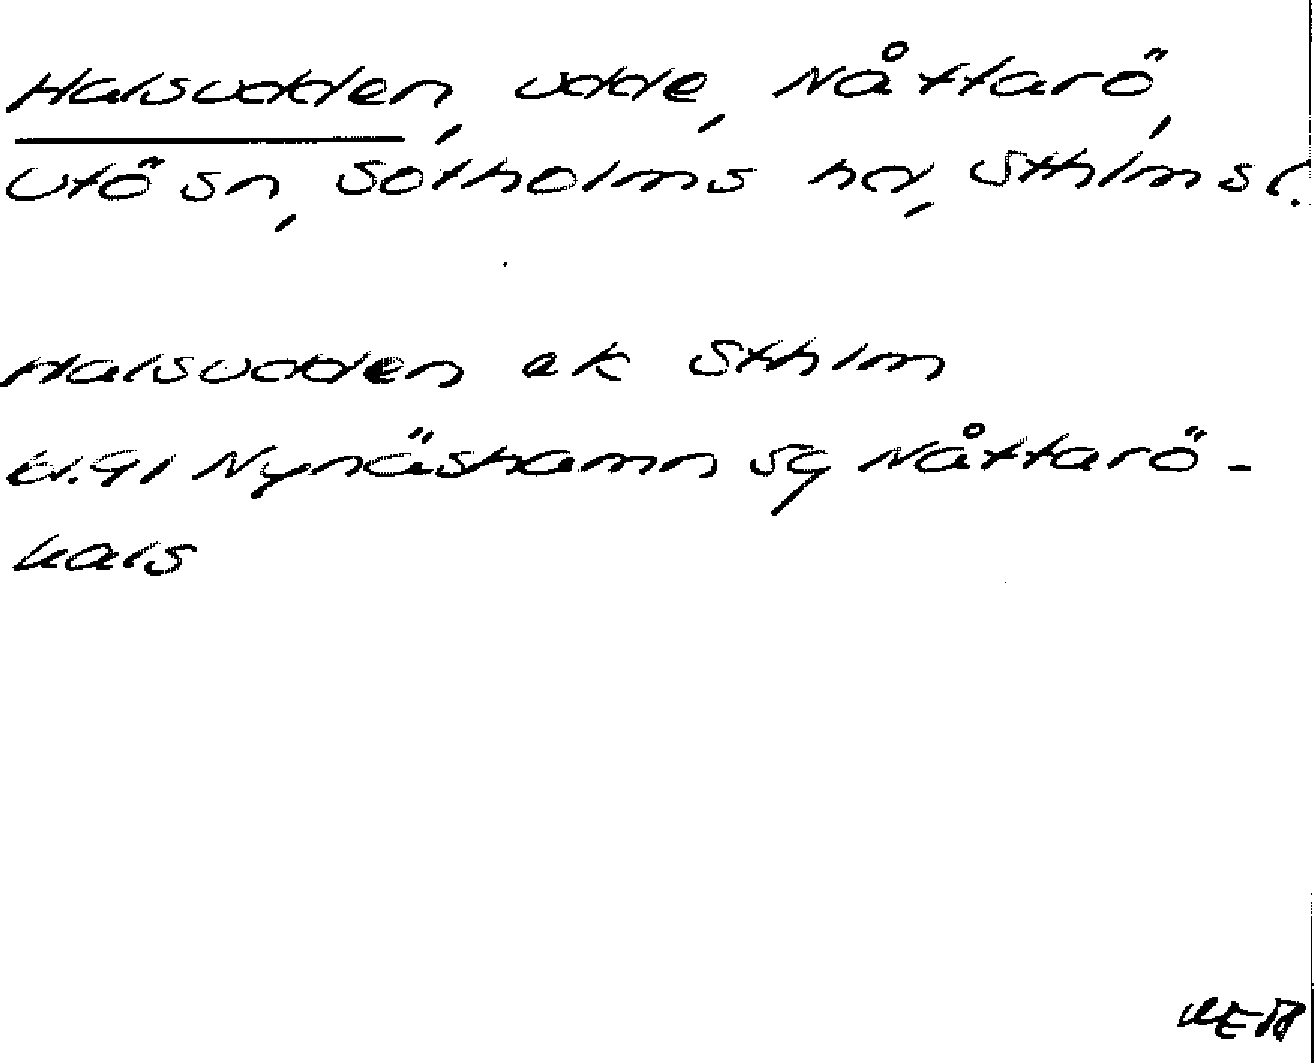 Halsudden, udde, Nåttarö,
Utö sn, Sotholms hd, Sthlms l.
Halsudden ek Sthlm
bl.91 Nynäshamn SÖ Nåttarö-
hals